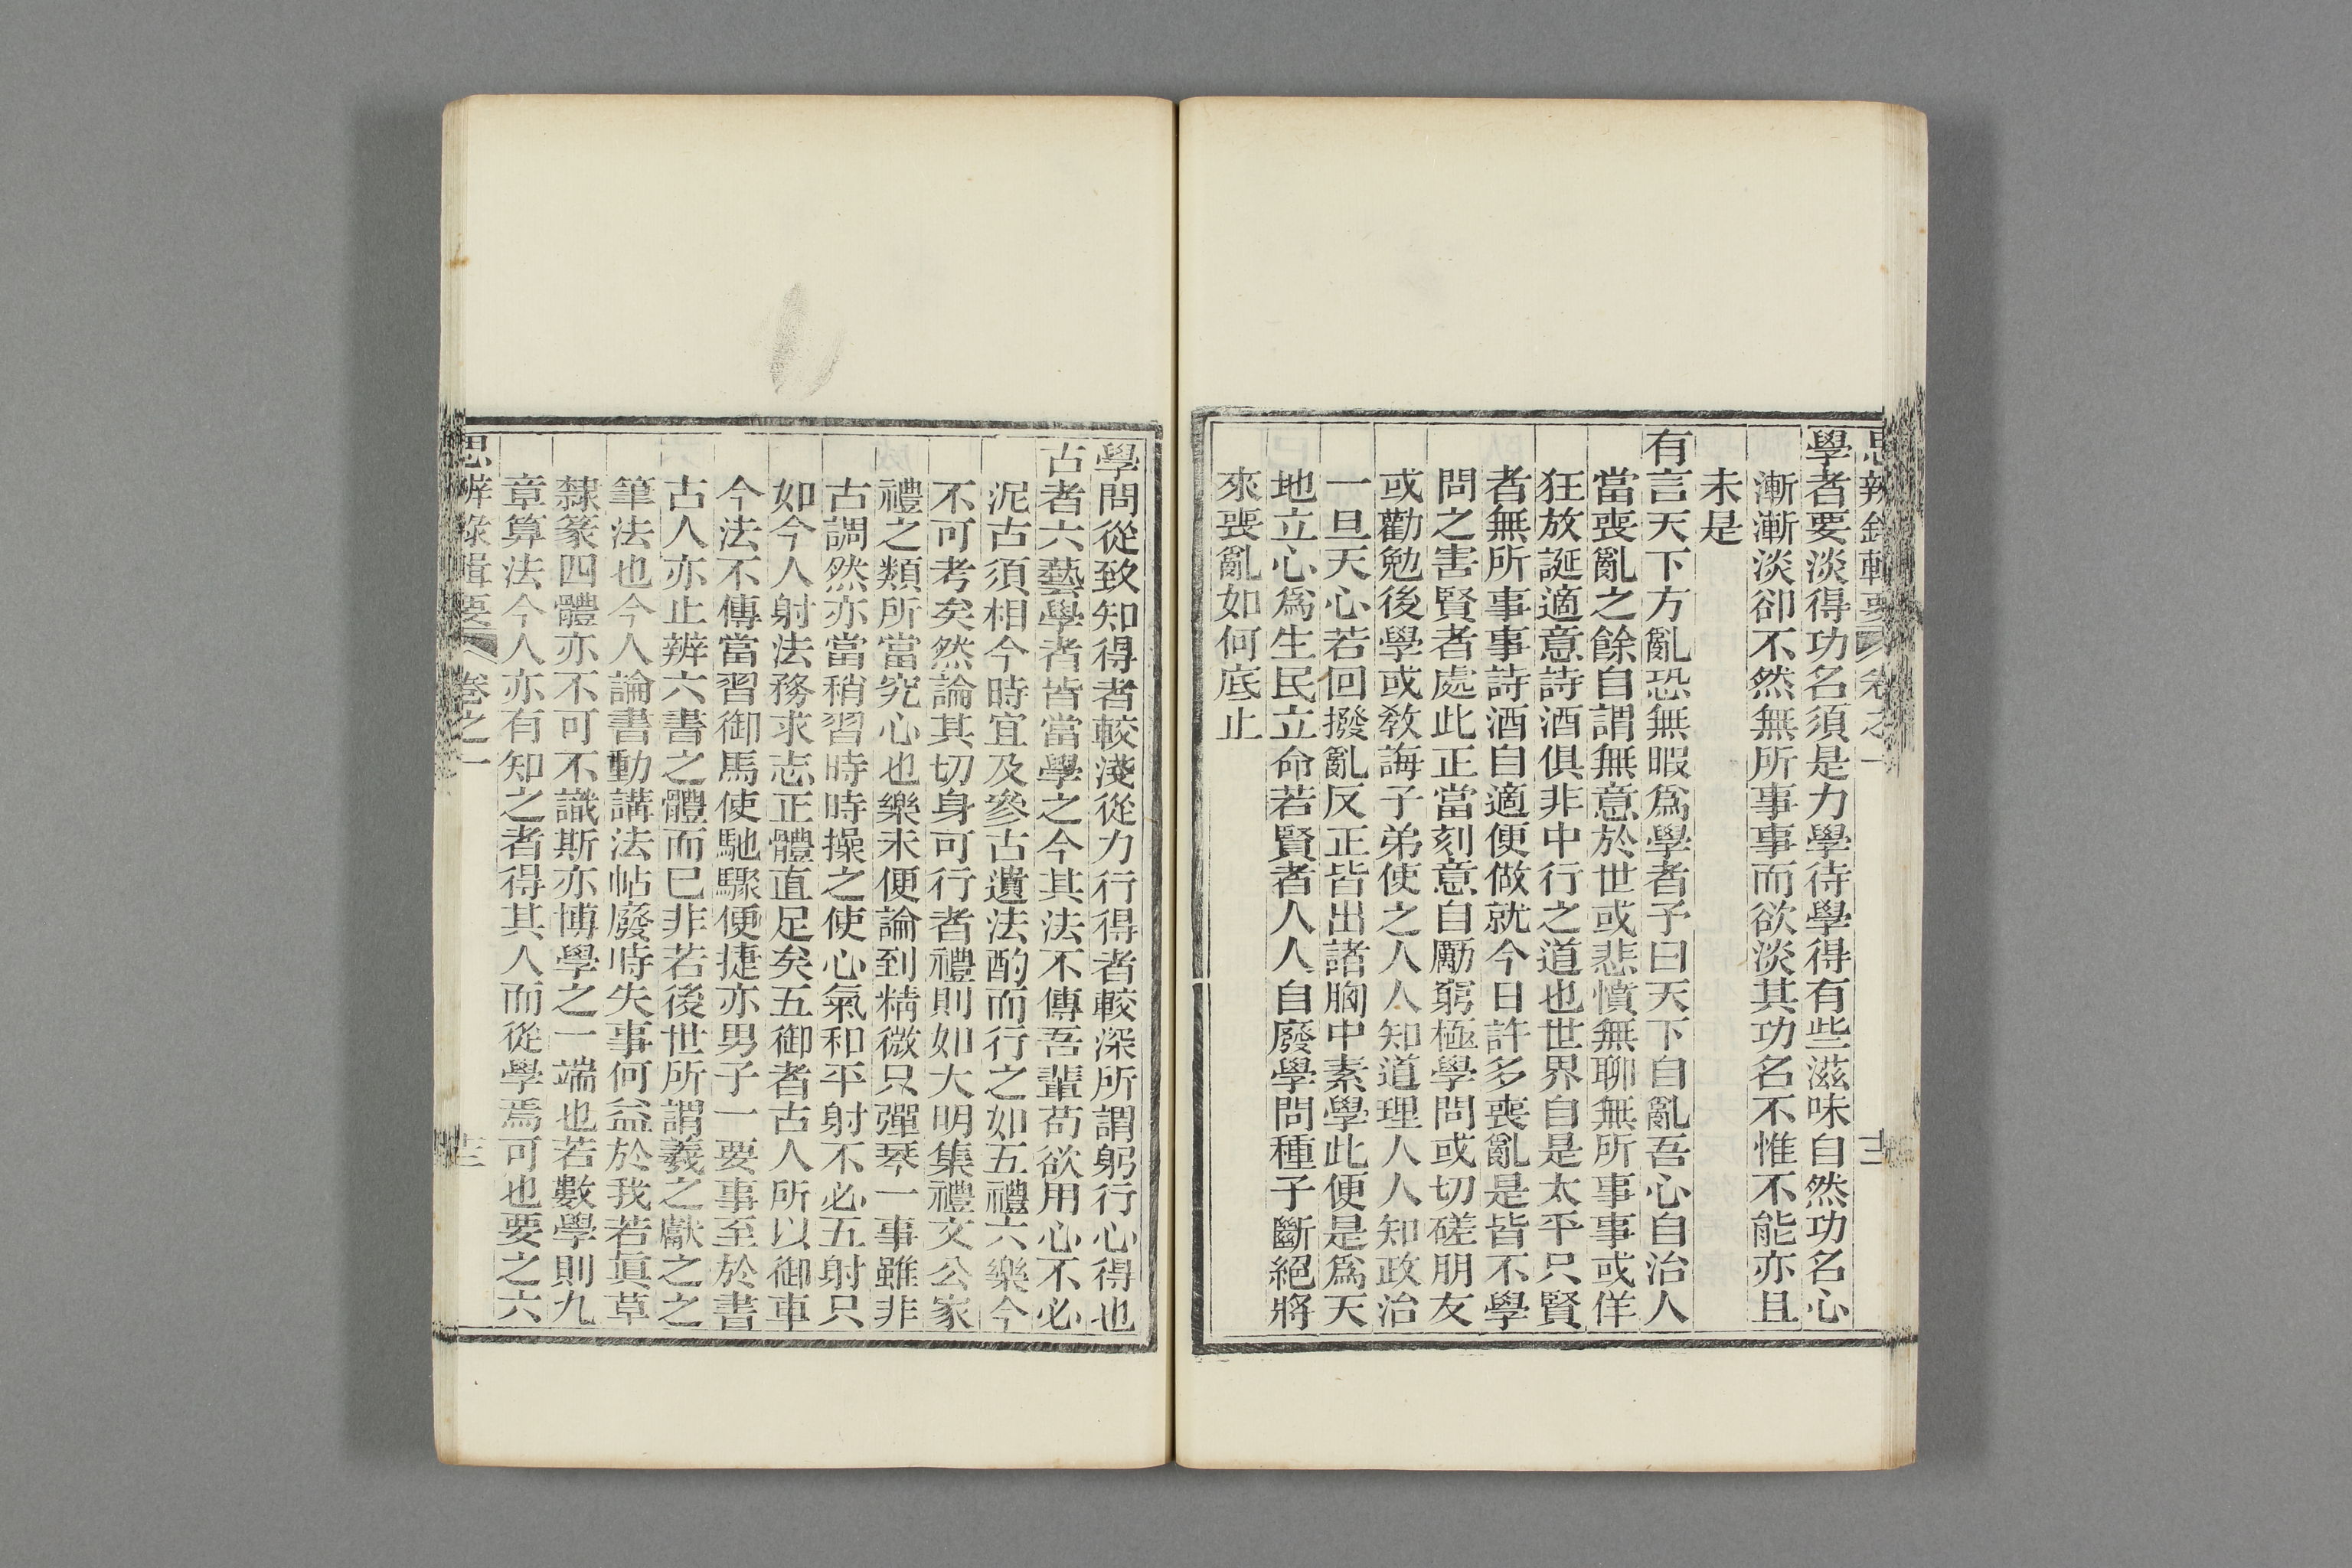 思辨錄輯要 卷之一 十二
學者要淡得功名須是力學待學得有些滋味自然功名心
漸漸淡卻不然無所事事而欲淡其功名不惟不能亦且
未是
有言天下方亂恐無暇爲學者予曰天下自亂吾心自治人
當喪亂之餘自謂無意於世或悲憤無聊無所事事或佯
狂放誕適意詩酒俱非中行之道也世界自是太平只賢
者無所事事詩酒自適便做就今日許多喪亂是皆不學
問之害賢者處此正當刻意自勵窮極學問或切磋朋友
或勸勉後學或敎誨子弟使之人人知道理人人知政治
一旦天心若回撥亂反正皆出諸胸中素學此便是爲天
地立心爲生民立命若賢者人人自廢學問種子斷絕將
來喪亂如何底止
學問從致知得者較淺從力行得者較深所謂躬行心得也
古者六藝學者皆當學之今其法不傳吾輩苟欲用心不必
泥古須相今時宜及參古遺法酌而行之如五禮六樂今
不可考矣然論其切身可行者禮則如大明集禮文公家
禮之類所當究心也樂未便論到精微只彈琴一事雖非
古調然亦當稍習時時操之使心氣和平射不必五射只
如今人射法務求志正體直足矣五御者古人所以御車
今法不傳當習御馬使馳驟便捷亦男子一要事至於書
古人亦止辨六書之體而已非若後世所謂羲之獻之之
筆法也今人論書動講法帖廢時失事何益於我若眞草
隸篆四體亦不可不識斯亦博學之一端也若數學則九
章算法今人亦有知之者得其人而從學焉可也要之六
思辨錄輯要 卷之一 十三